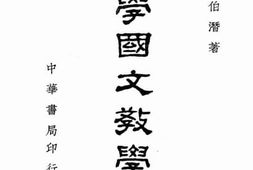 伯潛著
學國文教學
中華書局印行